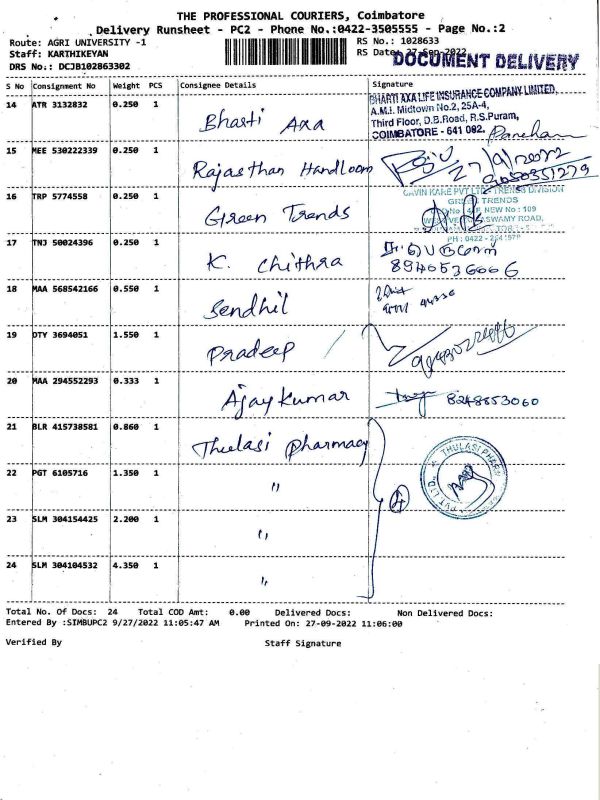 THE PROFESSIONAL COURIERS, Coimbatore
Delivery Runsheet - PC2 - Phone No.:0422-3505555 - Page No.:2
Route: AGRI UNIVERSITY -1
RS No.: 1028633
Staff: KARTHIKEYAN
RS Date: 27-Sep-2022
DOCUMENT DELIVERY
DRS No.: DCJB102863302
S No Consignment No Weight PCS Consignee Details Signature
14 ATR 3132832 0.250 1 Bharti Axa
BHARTI AXA LIFE INSURANCE COMPANY LIMITED,
A.M.I. Midtown No.2, 25A-4,
Third Floor, D.B.Road, R.S.Puram,
COIMBATORE - 641 002.
15 MEE 530222339 0.250 1 Rajasthan Handloom
27/9/2022
9050351279
16 TRP 5774558 0.250 1 Green Trends
CAVIN KARE PVT LTD - TRENDS DIVISION
GREEN TRENDS
NEW No : 109
SWAMY ROAD,
PH : 0422 -
17 TNJ 50024396 0.250 1 K. Chithra
8940536006
18 MAA 568542166 0.550 1 Sendhil
19 DTY 3694051 1.550 1 Pradeep
20 MAA 294552293 0.333 1 Ajay Kumar 8248853060
21 BLR 415738581 0.860 1 Thulasi Pharmacy
THULASI PHARM
PVT. LTD.
22 PGT 6105716 1.350 1 "
23 SLM 304154425 2.200 1 "
24 SLM 304104532 4.350 1 "
Total No. Of Docs: 24 Total COD Amt: 0.00 Delivered Docs: Non Delivered Docs:
Entered By :SIMBUPC2 9/27/2022 11:05:47 AM Printed On: 27-09-2022 11:06:00
Verified By Staff Signature